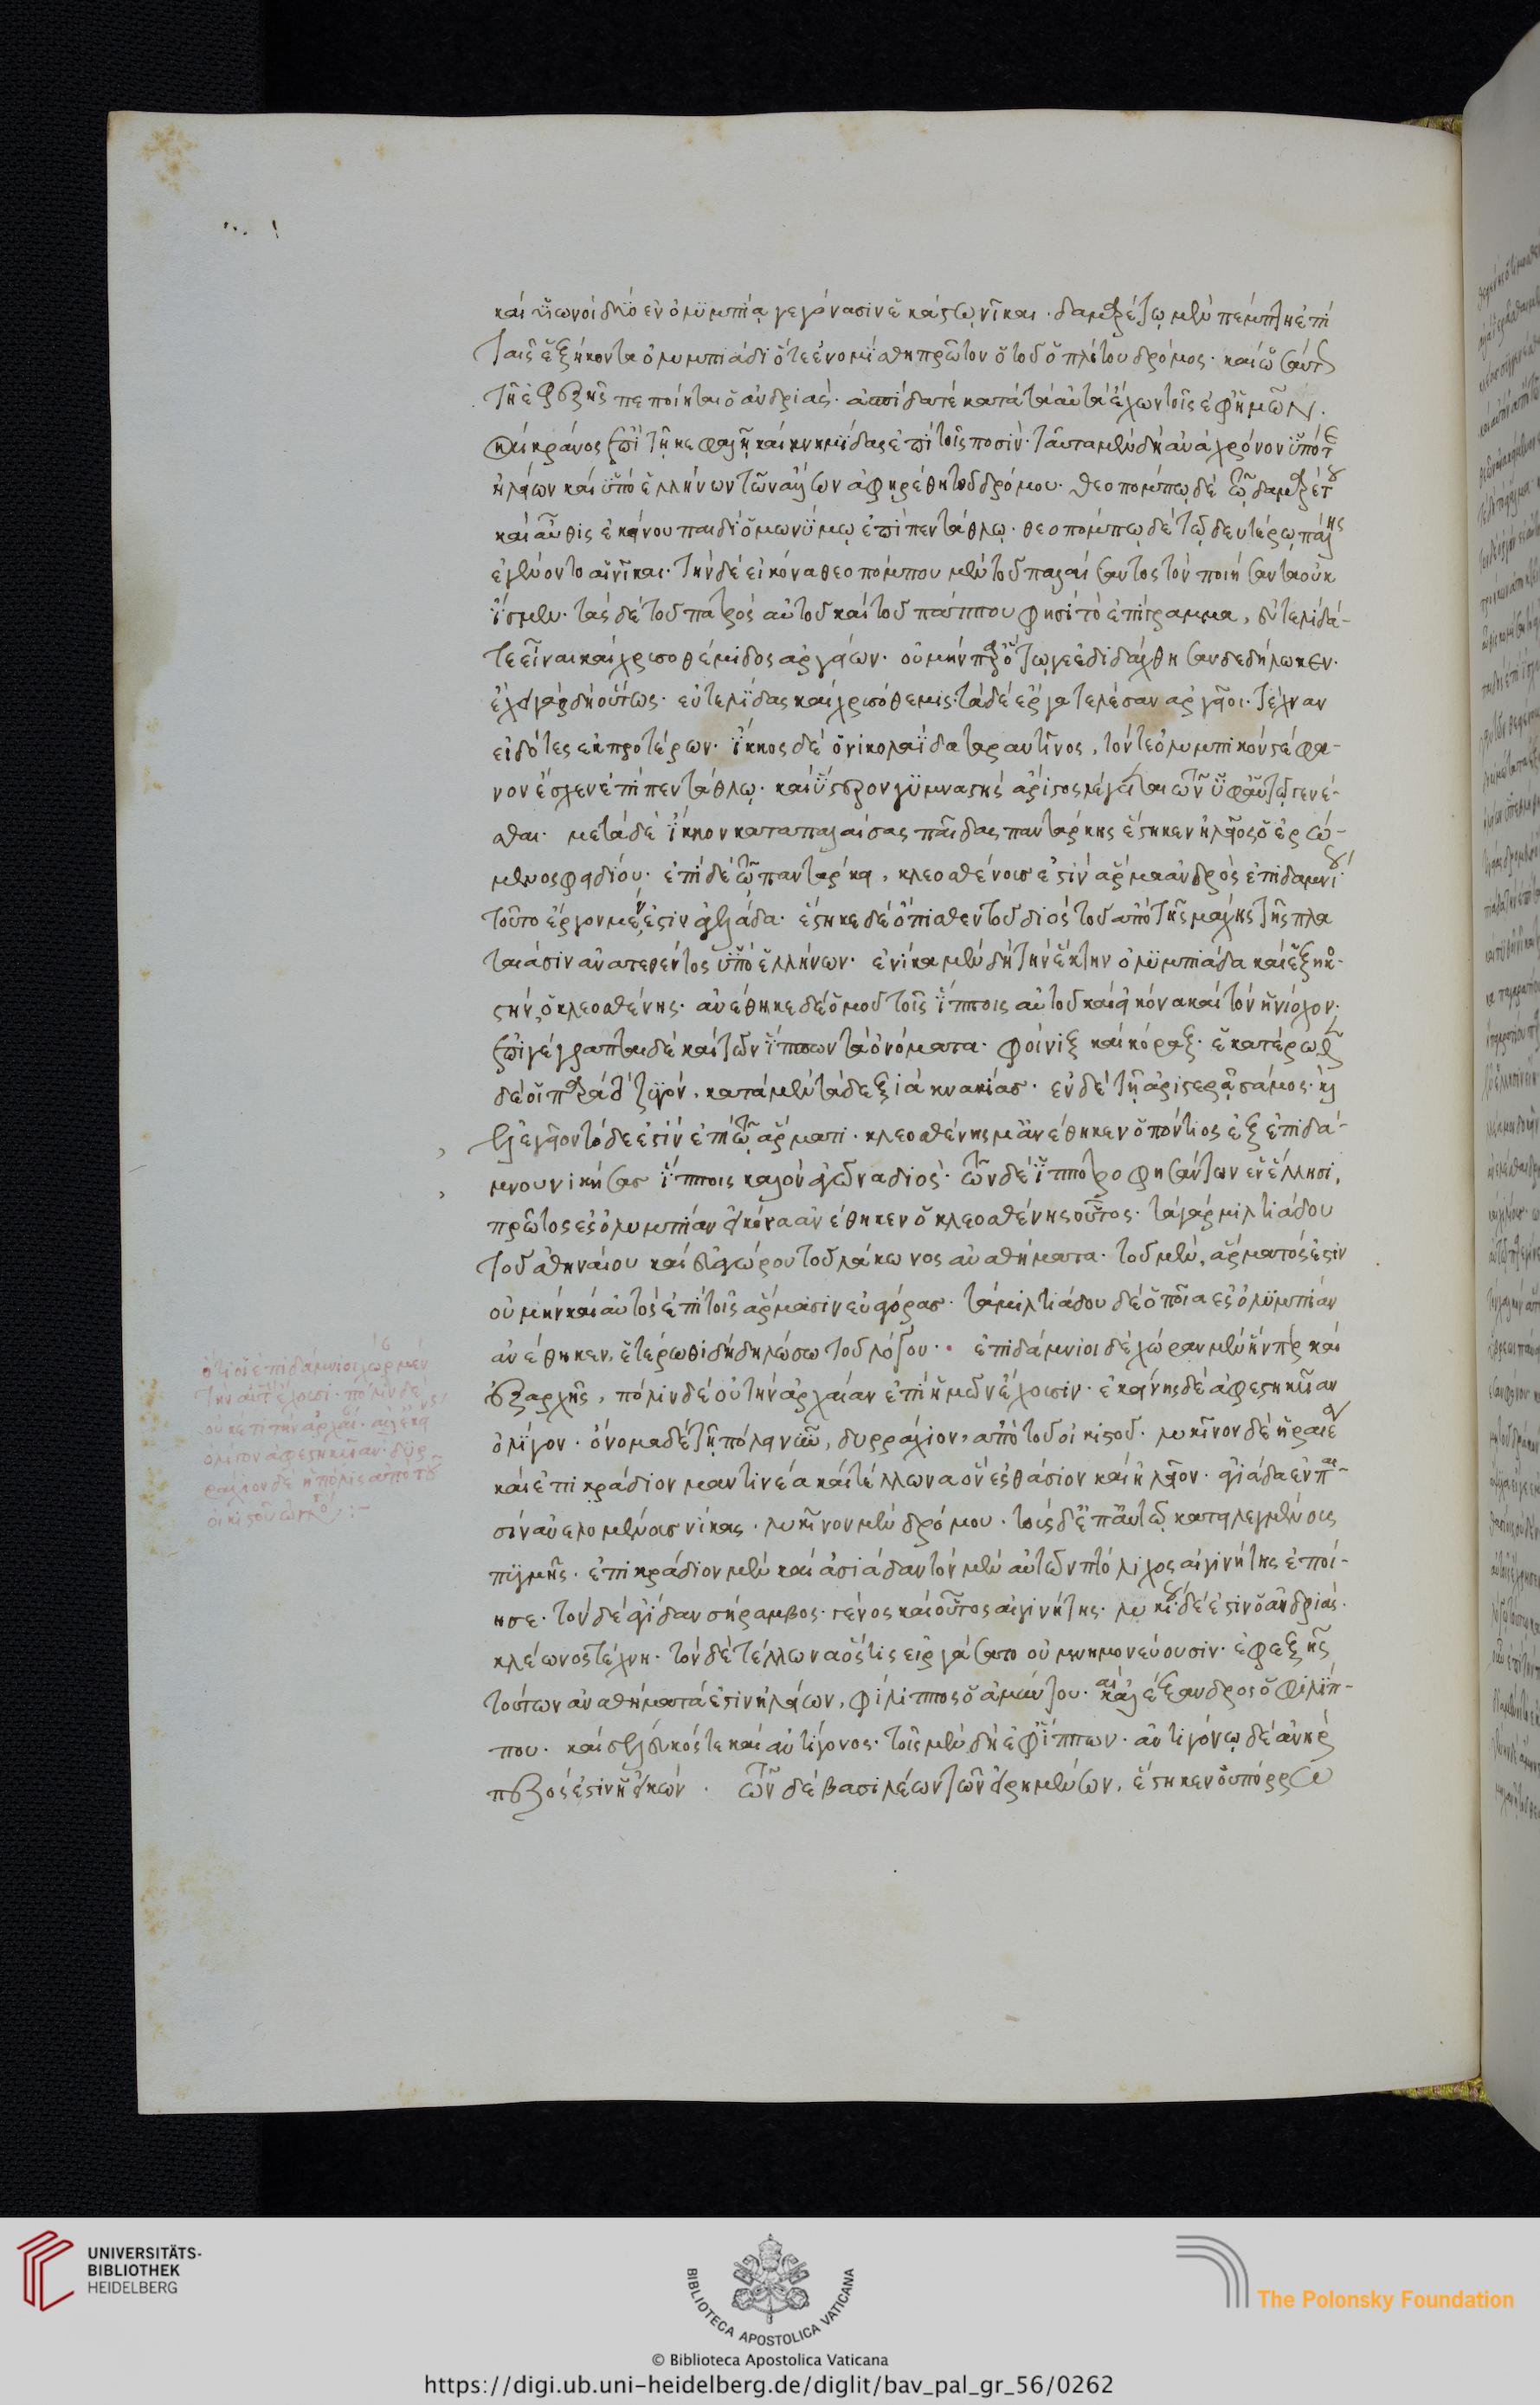 καὶ υἱωνοὶ δύο ἐν ὀλυμπίᾳ γεγόνασιν ἑκάστῳ νῖκαι. δαμαρέτῳ μὲν πέμπτῃ ἐπὶ
ταῖς ἑξήκοντα ὀλυμπιάδι ὅτε ἐνομίσθη πρῶτον ὁ τοῦ ὁπλίτου δρόμος. καὶ ὡσαύτ
τῇ ἐφεξῆς πεποίηται ὁ ἀνδριὰς. ἀσπίδα τὲ κατὰ τὰ αὐτὰ ἔχων τοῖς ἐφ ἡμῶν.
καὶ κράνος ἐπὶ τῇ κεφαλῇ καὶ κνημῖδας ἐπὶ τοῖς ποσίν. ταῦτα μὲν δὴ ἀνὰ χρόνον ὑπό τε
ἠλείων καὶ ὑπὸ ἑλλήνων τῶν ἄλλων ἀφηρέθη τοῦ δρόμου. θεοπόμπῳ δὲ τῷ δαμαρέτου
καὶ αὖθις ἐκείνου παιδὶ ὁμωνύμῳ ἐπὶ πεντάθλῳ. θεοπόμπῳ δὲ τῷ δευτέρῳ πάλης
ἐγένοντο αἱ νῖκαι. τὴν δὲ εἰκόνα θεοπόμπου μὲν τοῦ παλαίσαντος τὸν ποιήσαντα οὐκ
ἴσμεν. τὰς δὲ τοῦ πατρὸς αὐτοῦ καὶ τοῦ πάππου φησὶ τὸ ἐπίγραμμα, εὐτελίδα-
τε εἶναι καὶ χρυσοθέμιδος ἀργείων. οὐ μὴν παρ ὅτῳ γε ἐδιδάχθησαν δεδήλωκεν.
ἔχει γὰρ δὴ οὕτως. εὐτελίδας καὶ χρυσόθεμις τάδε ἔργα τελέσαν ἀργεῖοι. τέχναν
εἰδότες ἐκ προτέρων. ἴκκος δὲ ὁ νικολαΐδα ταραντῖνος, τόν τε ὀλυμπικὸν στέφα-
νον ἔσχεν ἐπὶ πεντάθλῳ. καὶ ὕστερον γυμναστὴς ἄριστος λέγεται τῶν ἐφ αὑτοῦ γενέ-
σθαι. μετὰ δὲ ἴκκον καταπαλαίσας παῖδας παντάρκης ἕστηκεν ἠλεῖος ὁ ἐρώ-
μενος φειδίου. ἐπὶ δὲ τῷ παντάρκει, κλεοσθένους ἐστὶν ἅρμα ἀνδρὸς ἐπιδαμνίου.
τοῦτο ἔργον μέν ἐστιν ἀγελάδα. ἕστηκε δὲ ὄπισθεν τοῦ διὸς τοῦ ἀπὸ τῆς μάχης τῆς πλα
ταιάσιν ἀνατεθέντος ὑπὸ ἑλλήνων. ἐνίκα μὲν δὴ τὴν ἕκτην ὀλυμπιάδα καὶ ἑξηκο-
στὴν, ὁ κλεοσθένης. ἀνέθηκε δὲ ὁμοῦ τοῖς ἵπποις αὑτοῦ καὶ εἰκόνα καὶ τὸν ἡνίοχον.
ἐπιγέγραπται δὲ καὶ τῶν ἵππων τὰ ὀνόματα. φοίνιξ καὶ κόραξ. ἑκατέρωθεν
δὲ οἱ παρὰ τὸ ζυγόν, κατὰ μὲν τὰ δεξιὰ κνακίας. ἐν δὲ τῇ ἀριστερᾷ σάμος. καὶ
ἐλεγεῖον τόδε ἐστὶν ἐπὶ τῷ ἅρματι. κλεοσθένης μ ἀνέθηκεν ὁ πόντιος ἐξ ἐπιδά-
μνου νικήσας ἵπποις καλὸν ἀγῶνα διός. τῶν δὲ ἱπποτροφησάντων ἐν ἕλλησι,
πρῶτος ἐς ὀλυμπίαν εἰκόνα ἀνέθηκεν ὁ κλεοσθένης οὗτος. τὰ γὰρ μιλτιάδου
τοῦ ἀθηναίου καὶ εὐαγόρου τοῦ λάκωνος ἀναθήματα. τοῦ μὲν, ἅρματός ἐστιν
οὐ μὴν καὶ αὐτὸς ἐπὶ τοῖς ἅρμασιν εὐαγόρας. τὰ μιλτιάδου δὲ ὁποῖα ἐς ὀλυμπίαν
ἀνέθηκεν, ἑτέρωθι δὴ δηλώσω τοῦ λόγου. ἐπιδάμνιοι δὲ χώραν μὲν ἥνπερ καὶ
ἐξαρχῆς, πόλιν δὲ οὐ τὴν ἀρχαίαν ἐπὶ ἡμῶν ἔχουσιν. ἐκείνης δὲ ἀφεστηκυῖαν
ὀλίγον. ὄνομα δὲ τῇ πόλει νῦν, δυρράχιον, ἀπὸ τοῦ οἰκιστοῦ. λυκῖνον δὲ ἡραιέα
καὶ ἐπικράδιον μαντινέα καὶ τέλλωνα ὀρεσθάσιον καὶ ἠλεῖον. ἀγιάδα ἐν παι-
σὶν ἀνελομένους νίκας. λυκῖνον μὲν δρόμου. τοὺς δὲ ἐπ αὐτῷ κατειλεγμένους
πυγμῆς. ἐπικράδιον μὲν καὶ ἀγιάδαν τὸν μὲν αὐτῶν πτόλιχος αἰγινήτης ἐποί-
ησε. τὸν δὲ ἀγιάδαν σήραμβος. γένος καὶ οὗτος αἰγινήτης. λυκίνου δέ ἐστιν ὁ ἀνδριὰς.
κλέωνος τέχνη. τὸν δὲ τέλλωνα ὅστις εἰργάσατο οὐ μνημονεύουσιν. ἐφεξῆς
τούτων ἀναθήματά ἐστιν ἠλείων, φίλιππος ὁ ἀμύντου. καὶ ἀλέξανδρος ὁ φιλίπ-
που. καὶ σέλευκός τε καὶ ἀντίγονος. τοῖς μὲν δὴ ἐφ ἵππων. ἀντιγόνῳ δὲ ἀνὴρ
πεζός ἐστιν ἡ εἰκών. τῶν δὲ βασιλέων τῶν εἰρημένων, ἕστηκεν οὐ πόρρω
ὅτι οἱ ἐπιδάμνιοι χώρ μὲν
τὴν αὐτ ἔχουσι. πόλιν δε
οὐκέτι τὴν ἀρχαί.
ὀλίγον ἀφεστηκυῖαν. δυρ
ράχιον δὲ ἡ πόλις ἀπὸ τοῦ
UNIVERSITÄTS-
BIBLIOTHEK
HEIDELBERG
BIBLIOTECA APOSTOLICA VATICANA
© Biblioteca Apostolica Vaticana
The Polonsky Foundation
https://digi.ub.uni-heidelberg.de/diglit/bav_pal_gr_56/0262